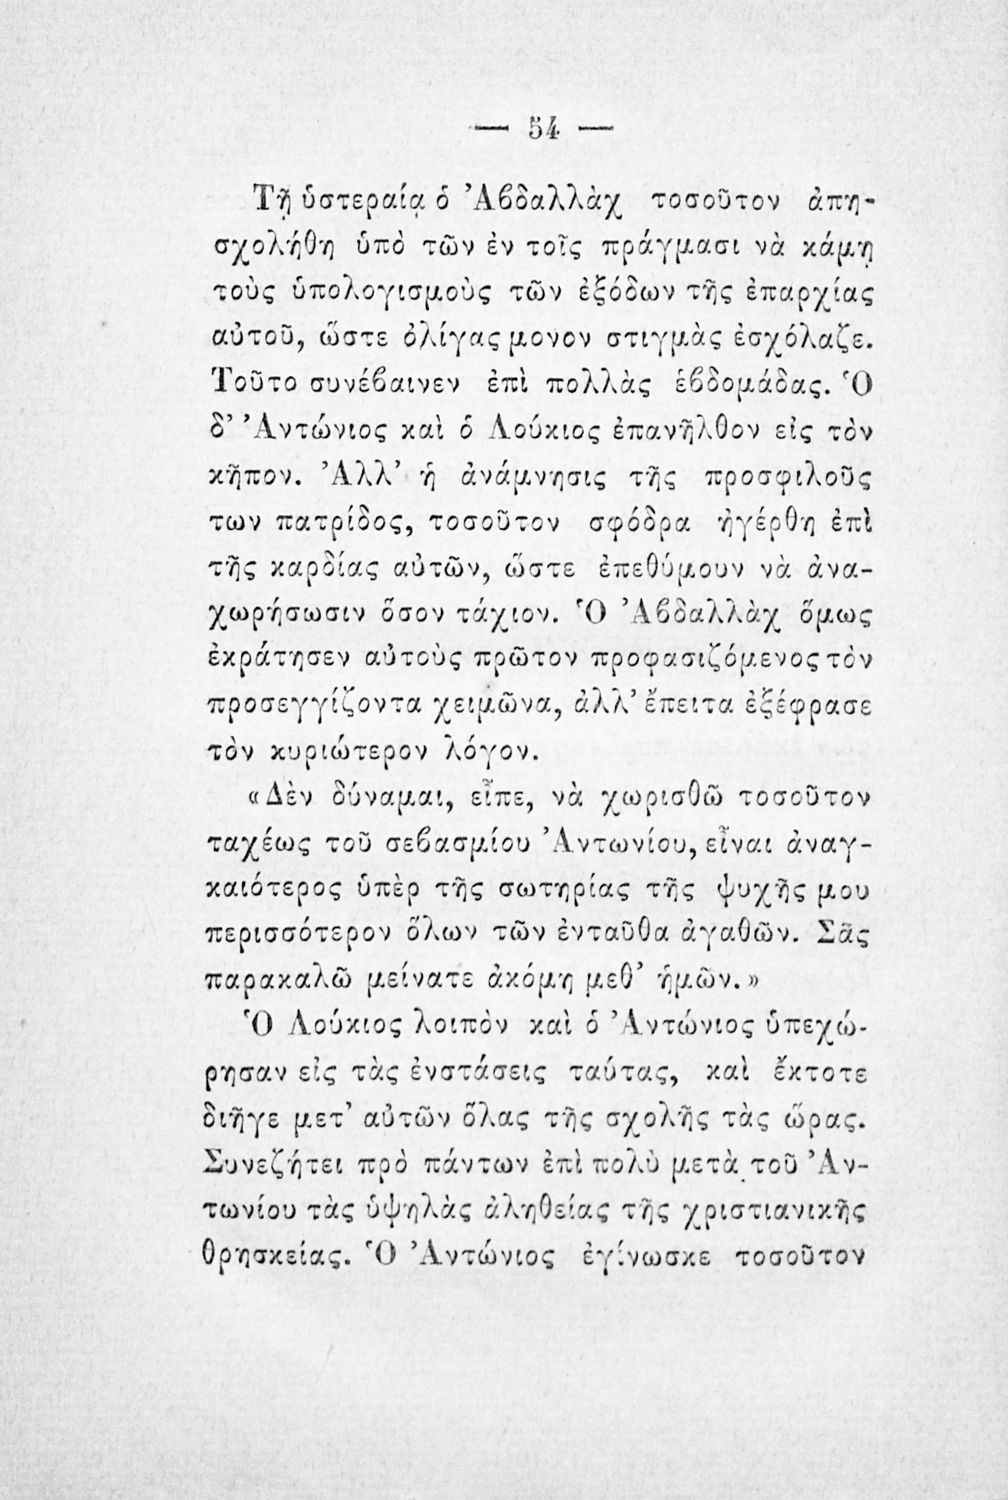 — 54 —
Τῇ ὑστεραίᾳ ὁ Ἀβδαλλὰχ τοσοῦτον ἀπη-
σχολήθη ὑπὸ τῶν ἐν τοῖς πράγμασι νὰ κάμῃ
τοὺς ὑπολογισμοὺς τῶν ἐξόδων τῆς ἐπαρχίας
αὐτοῦ, ὥστε ὀλίγας μονον στιγμὰς ἐσχόλαζε.
Τοῦτο συνέβαινεν ἐπὶ πολλὰς ἑβδομάδας. Ὁ
δ’ Ἀντώνιος καὶ ὁ Λούκιος ἐπανῆλθον εἰς τὸν
κῆπον. Ἀλλ’ ἡ ἀνάμνησις τῆς προσφιλοῦς
των πατρίδος, τοσοῦτον σφόδρα ἠγέρθη ἐπὶ
τῆς καρδίας αὐτῶν, ὥστε ἐπεθύμουν νὰ ἀνα-
χωρήσωσιν ὅσον τάχιον. Ὁ Ἀβδαλλὰχ ὅμως
ἐκράτησεν αὐτοὺς πρῶτον προφασιζόμενος τὸν
προσεγγίζοντα χειμῶνα, ἀλλ’ ἔπειτα ἐξέφρασε
τὸν κυριώτερον λόγον.
«Δὲν δύναμαι, εἶπε, νὰ χωρισθῶ τοσοῦτον
ταχέως τοῦ σεβασμίου Ἀντωνίου, εἶναι ἀναγ-
καιότερος ὑπὲρ τῆς σωτηρίας τῆς ψυχῆς μου
περισσότερον ὅλων τῶν ἐνταῦθα ἀγαθῶν. Σᾶς
παρακαλῶ μείνατε ἀκόμη μεθ’ ἡμῶν.»
Ὁ Λούκιος λοιπὸν καὶ ὁ Ἀντώνιος ὑπεχώ-
ρησαν εἰς τὰς ἐνστάσεις ταύτας, καὶ ἔκτοτε
διῆγε μετ’ αὐτῶν ὅλας τῆς σχολῆς τὰς ὥρας.
Συνεζήτει πρὸ πάντων ἐπὶ πολὺ μετὰ τοῦ Ἀν-
τωνίου τὰς ὑψηλὰς ἀληθείας τῆς χριστιανικῆς
θρησκείας. Ὁ Ἀντώνιος ἐγίνωσκε τοσοῦτον